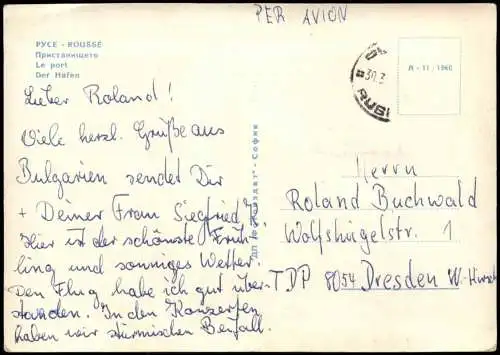 PER AVION
РУСЕ - ROUSSE
Пристанището
Le port
Der Hafen
Л - 11 / 1960
30.3
RUSE
Lieber Roland!
Viele herzl. Grüße aus
Bulgarien sendet Dir
+ Deiner Frau Siegfried.
Hier ist der schönste Früh-
ling und sonniges Wetter.
Den Flug habe ich gut über-
standen. In den Konzerten
haben wir stürmischen Beifall.
София
Herrn
Roland Buchwald
Wolfshügelstr. 1
TDP 8054 Dresden W.-Hirsch